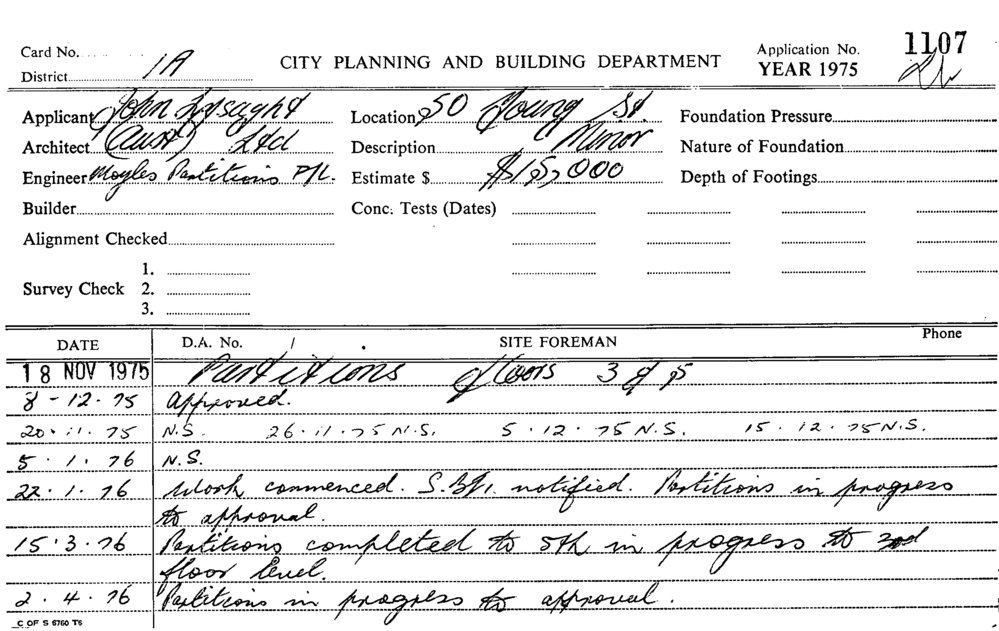 Card No.
District 1A
CITY PLANNING AND BUILDING DEPARTMENT
Application No. 1107
YEAR 1975
Applicant John Lysaght
Architect (Aust) Ltd
Engineer Moyles Partitions P/L.
Builder
Alignment Checked
Survey Check 1.
2.
3.
Location 50 Young St.
Description Minor
Estimate $ $15,000
Conc. Tests (Dates)
Foundation Pressure
Nature of Foundation
Depth of Footings
DATE D.A. No. / SITE FOREMAN Phone
18 NOV 1975 Partitions floors 3 & 5
8-12.75 Approved.
20.11.75 N.S. 26.11.75 N.S. 5.12.75 N.S. 15.12.75 N.S.
5.1.76 N.S.
22.1.76 Work commenced. notified. Partitions in progress
to approval.
15.3.76 Partitions completed to 5th in progress to
floor level.
2.4.76 Partitions in progress to approval.
C OF S 6760 T6